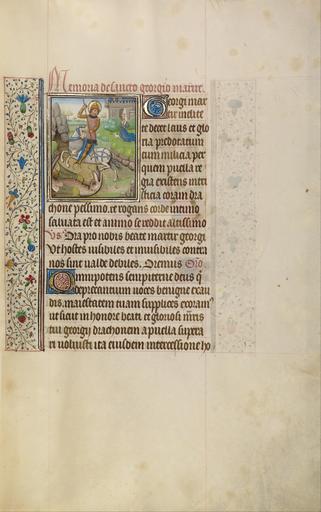 Memoria de sancto georgio martire.
Georgi mar
tir inclite
te decet laus et glo
ria predotatum
tum milicia per
quem puella re
gia existens in tri
sticia coram dra
chone pessimo. te rogans corde intimo
saluata est et animo se reddit altissimo
vs Ora pro nobis beate martir georgi
Ut hostes uisibiles et inuisibiles contra
nos sint ualde debiles. Oremus Oro
Omnipotens sempiterne deus q
deprecantium uoces benigne exau
dis. maiestatem tuam supplices exoram
ut sicut in honore beati et gloriosi mris
tui georgij drachonem a puella supera
ri voluisti ita eiusdem intercessione ho